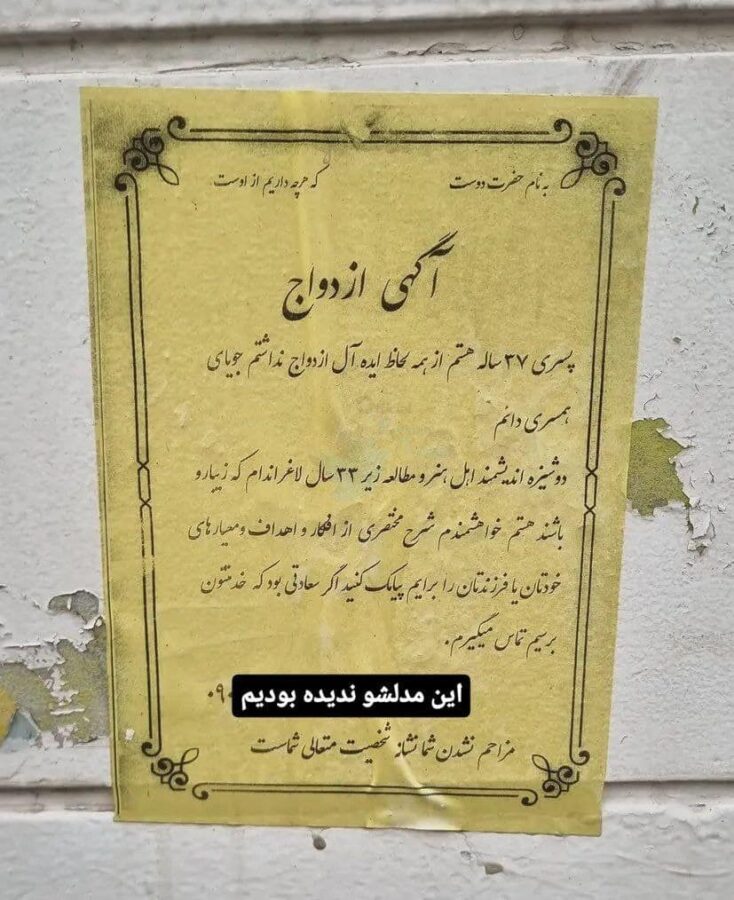 به نام حضرت دوست که هرچه داریم از اوست
آگهی ازدواج
پسری ۳۷ ساله هستم از همه لحاظ ایده آل ازدواج نداشتم جویای
همسری دانم
دوشیزه اندیشمند اهل هنر و مطالعه زیر ۳۳ سال لاغر اندام که زیبارو
باشند هستم خواهشمندم شرح مختصری از افکار و اهداف و معیارهای
خودتان یا فرزندتان را برایم پیامک کنید اگر سعادتی بود که خدمتتون
برسیم تماس میگیرم.
۰۹۰
این مدلشو ندیده بودیم
مزاحم نشدن شما نشانه شخصیت متعالی شماست